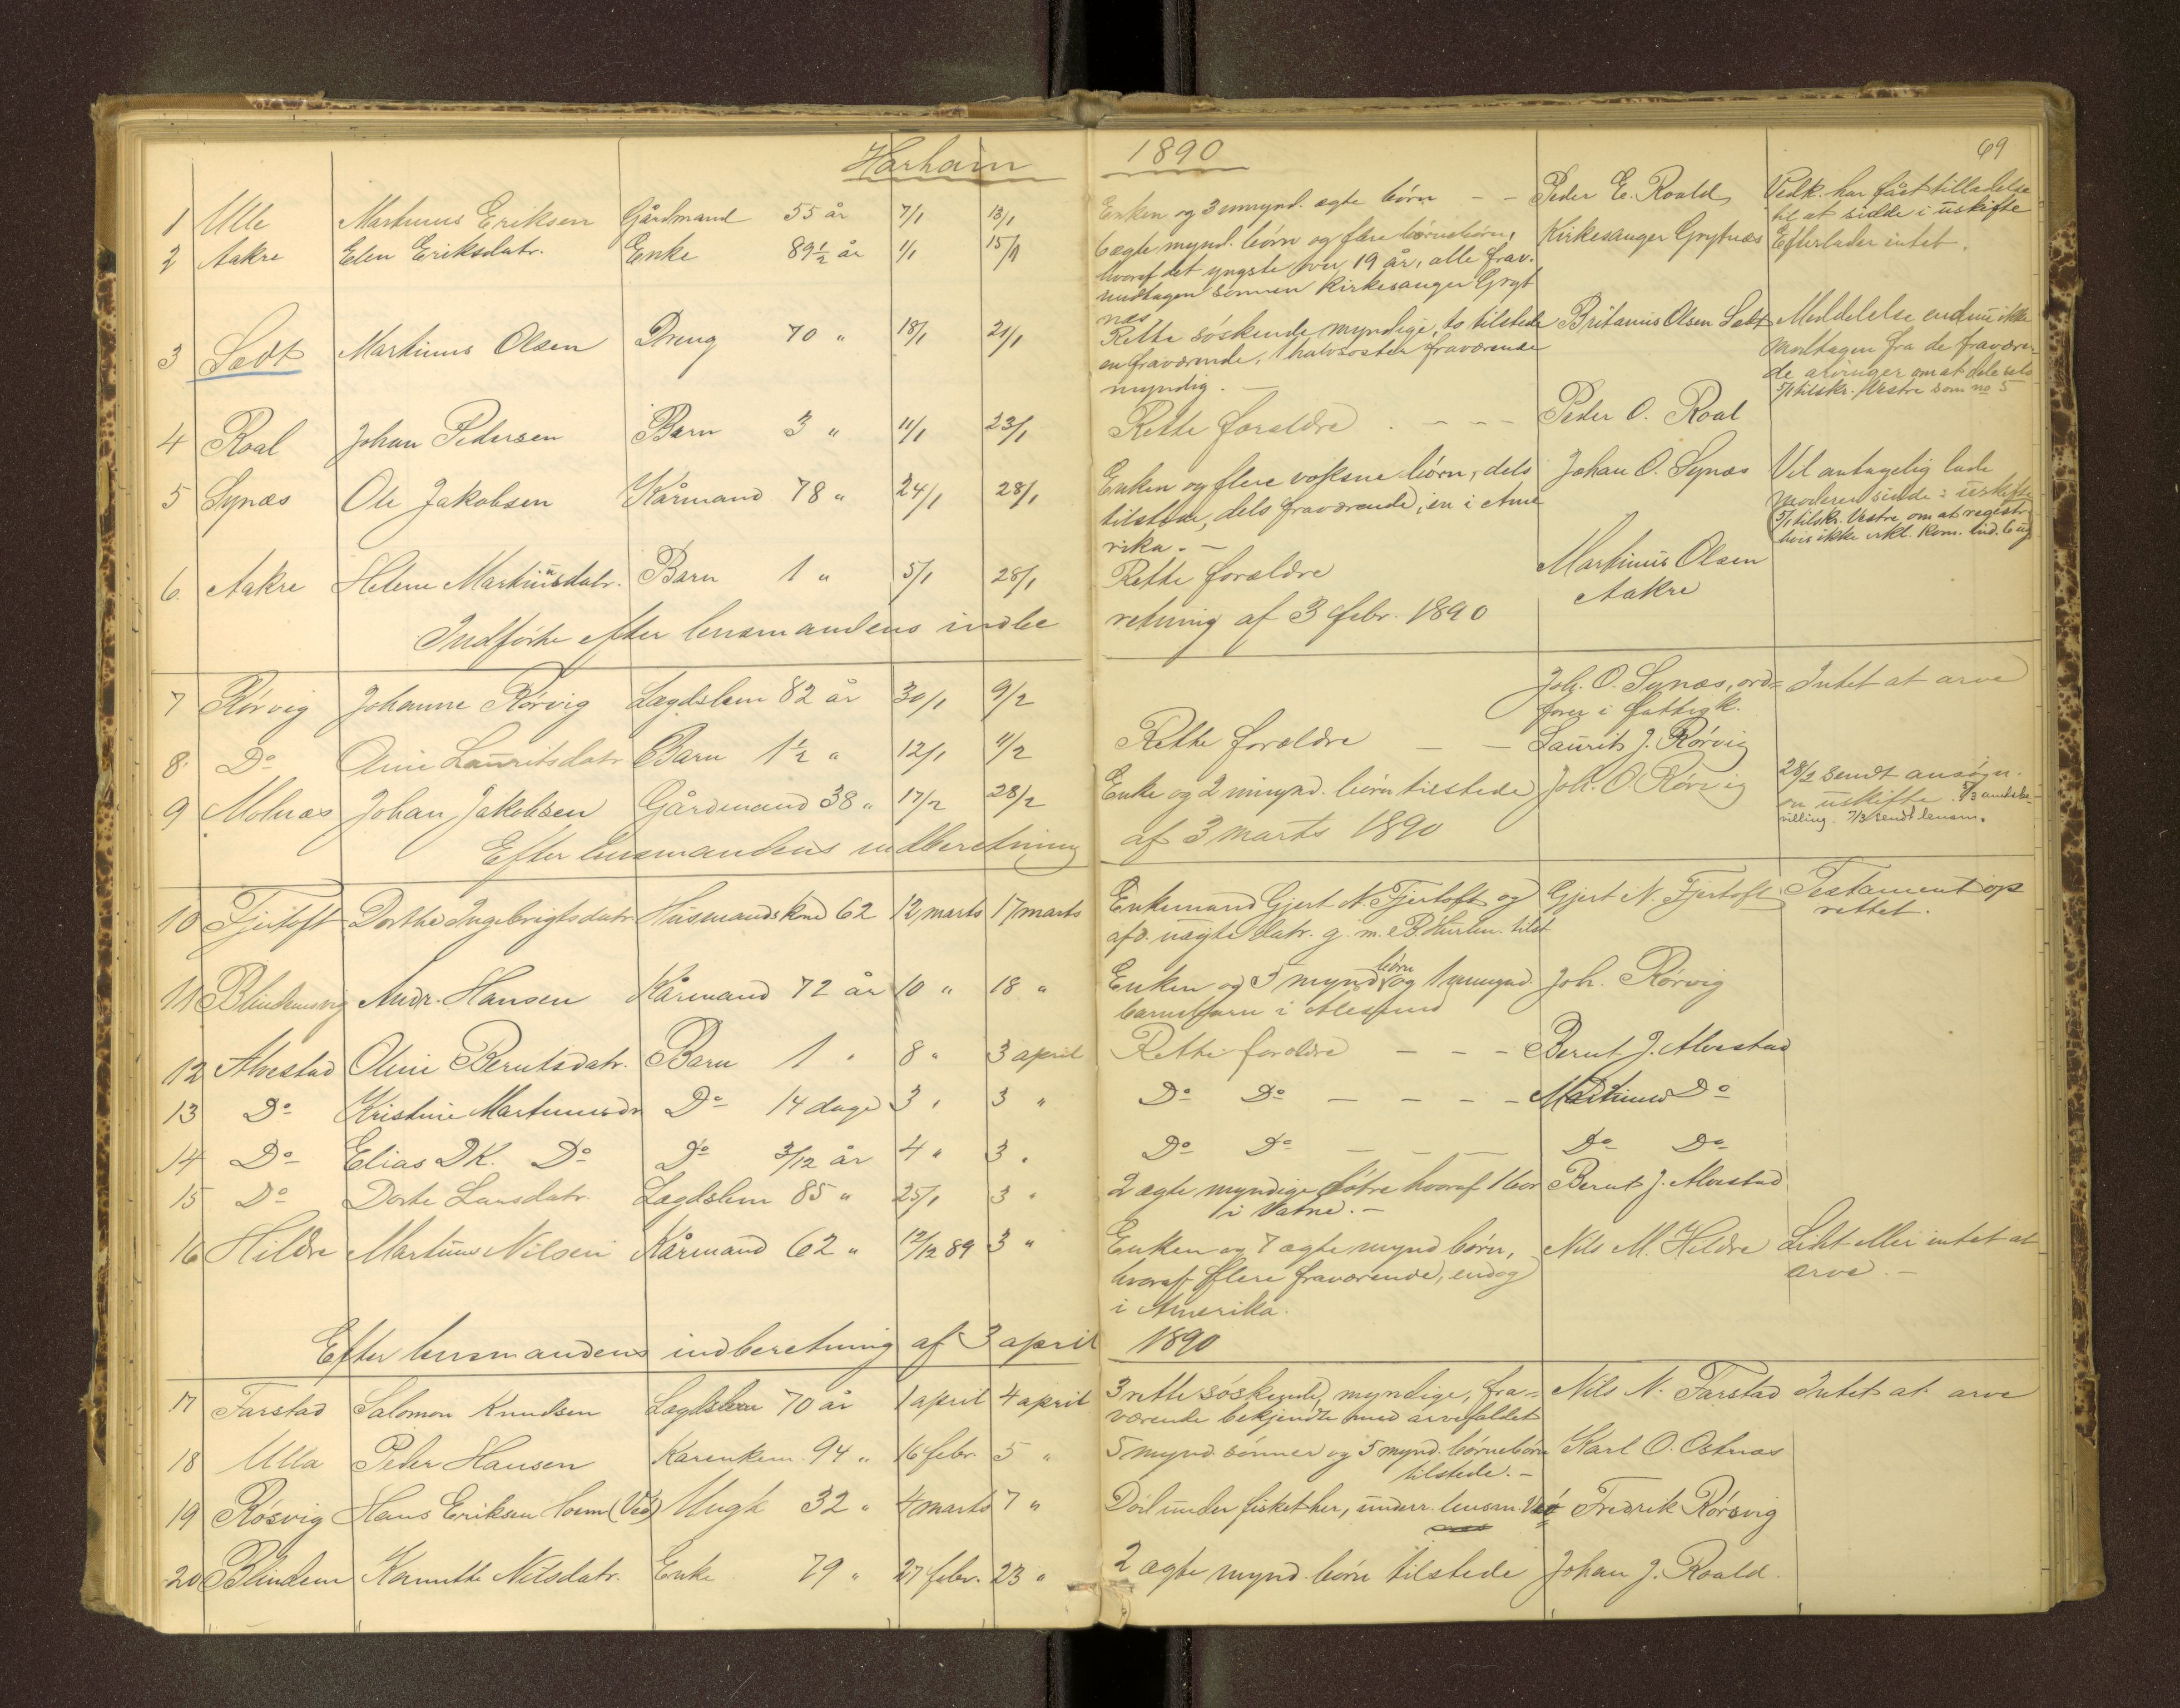 Harham 1890 69
1 Ulle Martinus Eriksen Gårdmand 55 år 7/1 13/1 Enken og 3 umynd. ægte börn - - Peder E. Roald Vedk. har fået tilladelse
til at sidde i uskifte
2 Aakre Elen Eriksdatr. Enke 89½ år 1/1 15/1 6 ægte mynd. börn og flere börnebörn, Kirkesanger Grytnæs Efterlader intet.
hvoraf det yngste over 19 år, alle frav.
undtagen sönnen Kirkesanger Gryt
næs.
3 Sædt Martinus Olsen Dreng 70 " 18/1 21/1 Rette söskende myndige, to tilstede Britanus Olsen Sædt Meddelelse endnu ikke
en fraværende, 1 halvsöster fraværende modtagen fra de fraværen-
myndig. - de arvinger om at dele selv
5/1 tilskr. Vestre som no 5
4 Roal Johan Pedersen Barn 3 " 11/1 23/1 Rette forældre - - - Peder O. Roal
5 Synæs Ole Jakobsen Kårmand 78 " 24/1 28/1 Enken og flere voksne börn, dels Johan O. Synæs Vil antagelig lade
tilstede, dels fraværende, en i Ame moderen sidde i uskifte
rika. - 5/1 tilskr. Vestre om at registr.
hvis ikke erkl. kom. ind.
6. Aakre Helene Martinusdatr. Barn 1 " 5/1 28/1 Rette forældre Martinus Olsen
Aakre
Indförte efter lensmandens indbe retning af 3 febr. 1890
7 Rörvig Johanne Rörvig Lægdslem 82 år 30/1 9/2 Joh. O. Synæs, ord= Intet at arve
förer i fattigk.
8. Do Oline Lauritsdatr Barn 1½ " 12/1 11/2 Rette forældre - - Laurits J. Rörvig
9 Molnæs Johan Jakobsen Gårdmand 38 " 17/2 28/2 Enke og 2 umynd. börn tilstede Joh. O. Rörvig 28/2 sendt ansögn.
om uskifte. 5/3 amtsbe-
villing. 7/3 sendt lensm.
Efter lensmandens indberetning af 3 marts 1890
10 Fjertoft Dorthe Ingebrigtsdatr. Husmandskone 62 12 marts 17 marts Enkemand Gjert N. Fjertoft og Gjert N. Fjertoft Testament op
afd. uægte datr. g. m. tilst rettet.
11 Blindemsvig Andr. Hansen Kårmand 72 år 10 " 18 " Enken og 5 mynd. börn og 1 umynd. Joh. Rörvig
barnebarn i Alesund
12 Alvestad Oline Berntsdatr. Barn 1 " 8 " 3 april Rette forældre - - - Bernt J. Alvestad
13 Do Kristine Martinusdr Do 14 dage 3 " 3 " Do Do - - - - Martinus Do
14 Do Elias DK. Do Do 3/12 år 4 " 3 " Do Do - - - Do Do
15 Do Dorte Larsdatr. Lægdslem 85 " 25/1 3 " 2 ægte myndige dötre hvoraf 1 bor Bernt J. Alvestad
i Vatne. -
16 Hildre Martinus Nilsen Kårmand 62 " 12/12 89 3 " Enken og 7 ægte mynd börn, Nils M. Hildre Lidt eller intet at
hvoraf flere fraværende, endog arve. -
i Amerika.
Efter lensmandens indberetning af 3 april 1890
17 Farstad Salomon Knudsen Lægdslem 70 år 1 april 4 april 3 rette söskende, myndige, fra= Nils N. Farstad Intet at arve
værende bekjendte med arvefaldet
18 Ulla Peder Hansen Kårenkem. 94 " 16 febr. 5 " 5 mynd. sönner og 5 mynd. börnebörn Karl O. Ostnæs
tilstede. -
19 Rösvig Hans Eriksen Hoem (Vedö) Ungk 32 " 4 marts 7 " Död under fisket her, underr. lensm. Vedö Fredrik Rörsvig
20 Blindem Karnitthe Nilsdatr. Enke 79 " 27 febr. 23 " 2 ægte mynd. börn tilstede Johan J. Roald.